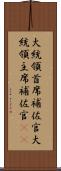 大統領首席補佐官大
統領主席補佐官